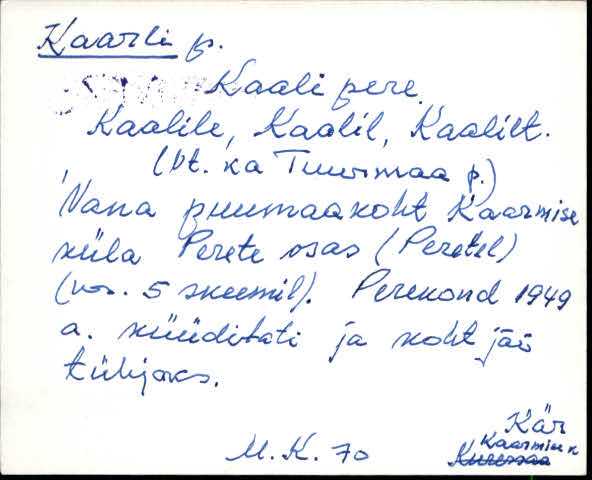 Kaarli p.
Kaali pere.
Kaalile, Kaalil, Kaalilt.
(Vt. ka Tuurmaa p.)
Vana puumaakoht Kaarmise
küla Perete osas (Peretel)
(nr. 5 skeemil). Perekond 1949
a. küüditati ja koht jäi
tühjaks.
Kär
M.K. 70
Kaarmise k